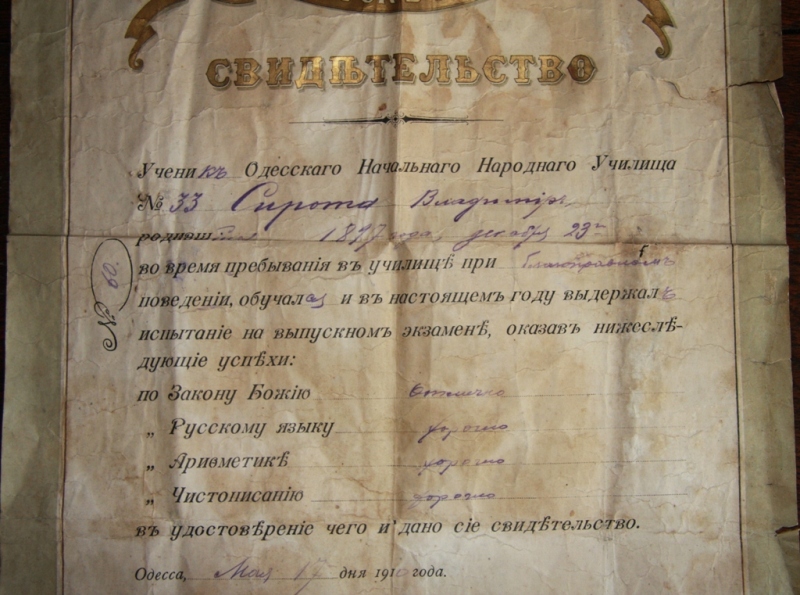 СВИДѢТЕЛЬСТВО
Ученикъ Одесскаго Начальнаго Народнаго Училища
№ 33 Сирота Владиміръ,
родивш 1897 года, декабря 23
во время пребыванія въ училищѣ при благонравномъ
поведеніи, обучался и въ настоящемъ году выдержалъ
испытаніе на выпускномъ экзаменѣ, оказавъ нижеслѣ-
дующіе успѣхи:
по Закону Божію отлично
„ Русскому языку хорошо
„ Ариѳметикѣ хорошо
„ Чистописанію хорошо
въ удостовѣреніе чего и дано сіе свидѣтельство.
Одесса, Мая 17 дня 191 года.
№ 60.